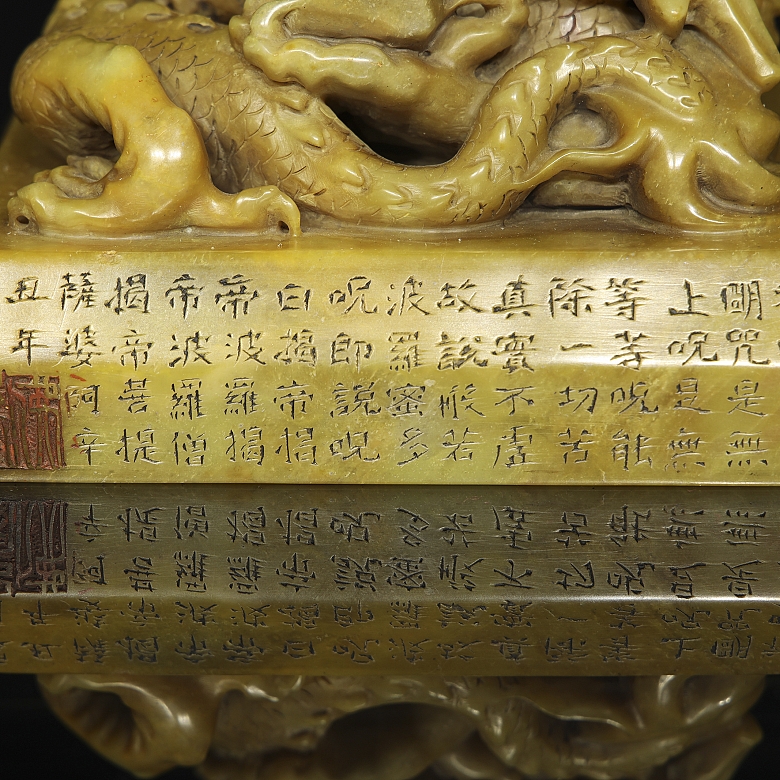 明咒是無
上呪是無
等等呪能
除一切苦
真實不虛
故說般若
波羅蜜多
呪即說呪
曰揭帝揭
帝波羅揭
帝波羅僧
揭帝菩提
薩婆阿辛
丑年